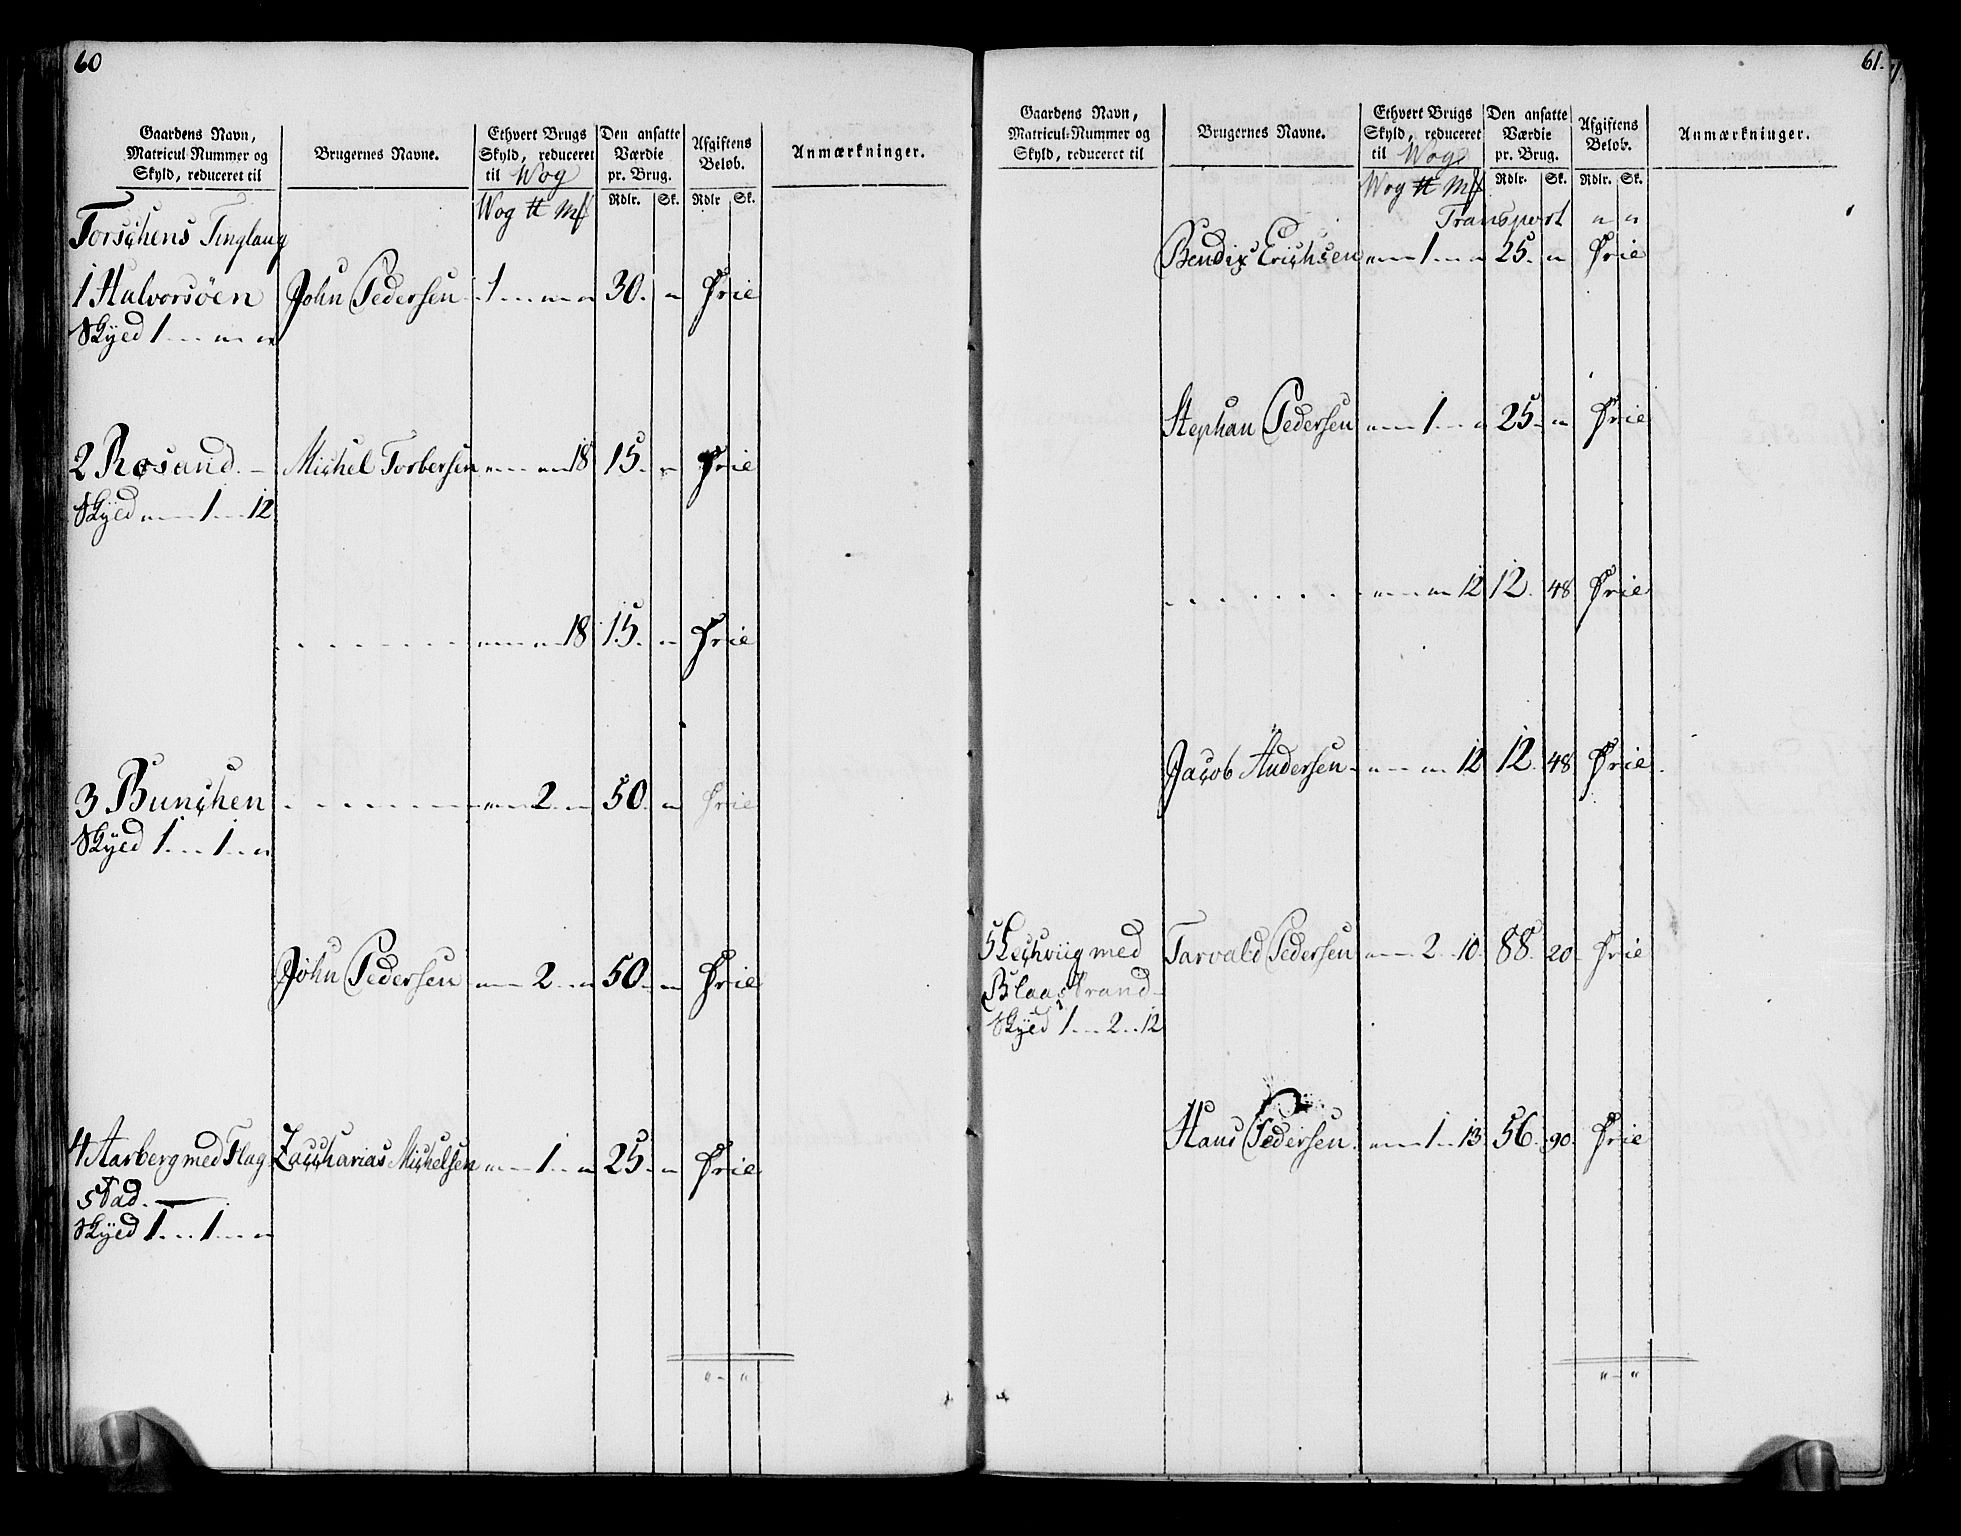 60
Gaardens Navn, Matricul-Nummer og Skyld, reduceret til | Brugernes Navne. | Ethvert Brugs Skyld, reduceret til Wog | Den ansatte Værdie pr. Brug. | Afgiftens Beløb. | Anmærkninger.
Wog ℔ Mk | Rdlr. | Sk. | Rdlr | Sk.
Torschens Tinglaug
1 Halvorsöen | John Pedersen | 1 " " | 30. " | Frie
Skyld 1 " "
2 Rosand. | Michel Torbersen | " " 18 | 15. " | Frie
Skyld " 1 12
" " 18 | 15. " | Frie
3 Bunchen | " 2 " | 50. " | Frie
Skyld 1 1 "
John Pedersen | " 2 " | 50. " | Frie
4 Aarberg med Flag- | Zaccharias Michelsen | " 1 " | 25. " | Frie
stad.
Skyld 1 1 "
" - "
61.
Gaardens Navn, Matricul-Nummer og Skyld, reduceret til | Brugernes Navne. | Ethvert Brugs Skyld, reduceret til Wog | Den ansatte Værdie pr. Brug. | Afgiftens Beløb. | Anmærkninger.
Wog ℔ Mk | Rdlr. | Sk. | Rdlr. | Sk.
Transport " "
Bendix Erichsen | " 1 " | 25. " | Frie
Stephan Pedersen | " 1 " | 25. " | Frie
" " 12 | 12. 48 | Frie
Jacob Andersen | " " 12 | 12. 48 | Frie
5 Lechviig med | Tarvald Pedersen | " 2 10. | 88. 20. | Frie
Blaastrand
Skyld 1 2 12
Hans Pedersen | " 1 13 | 56. 90. | Frie
" - "